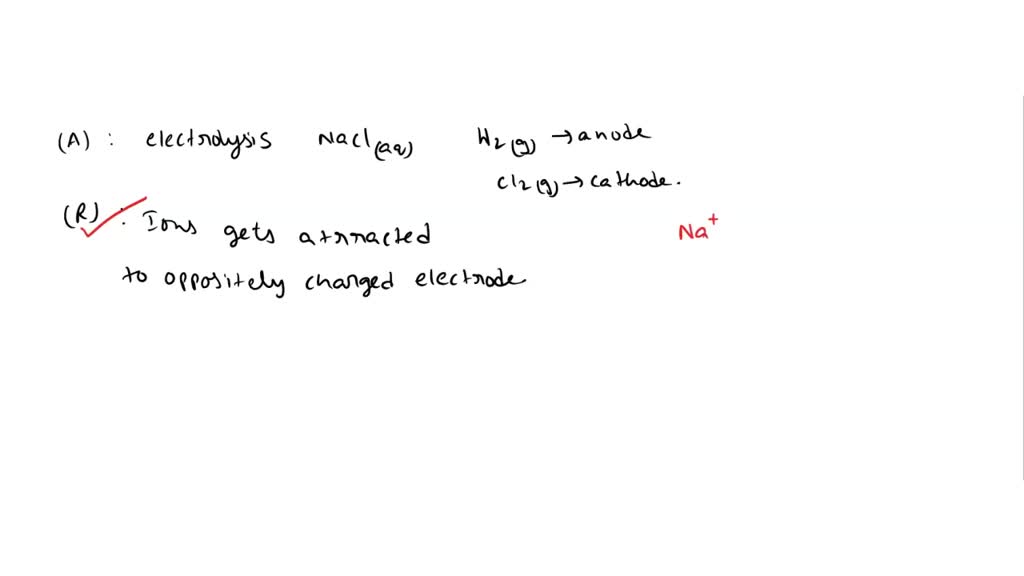 (A) : electrolysis NaCl(aq) H2(g) → anode
Cl2(g) → cathode.
(R) : Ions gets attracted
Na+
to oppositely charged electrode